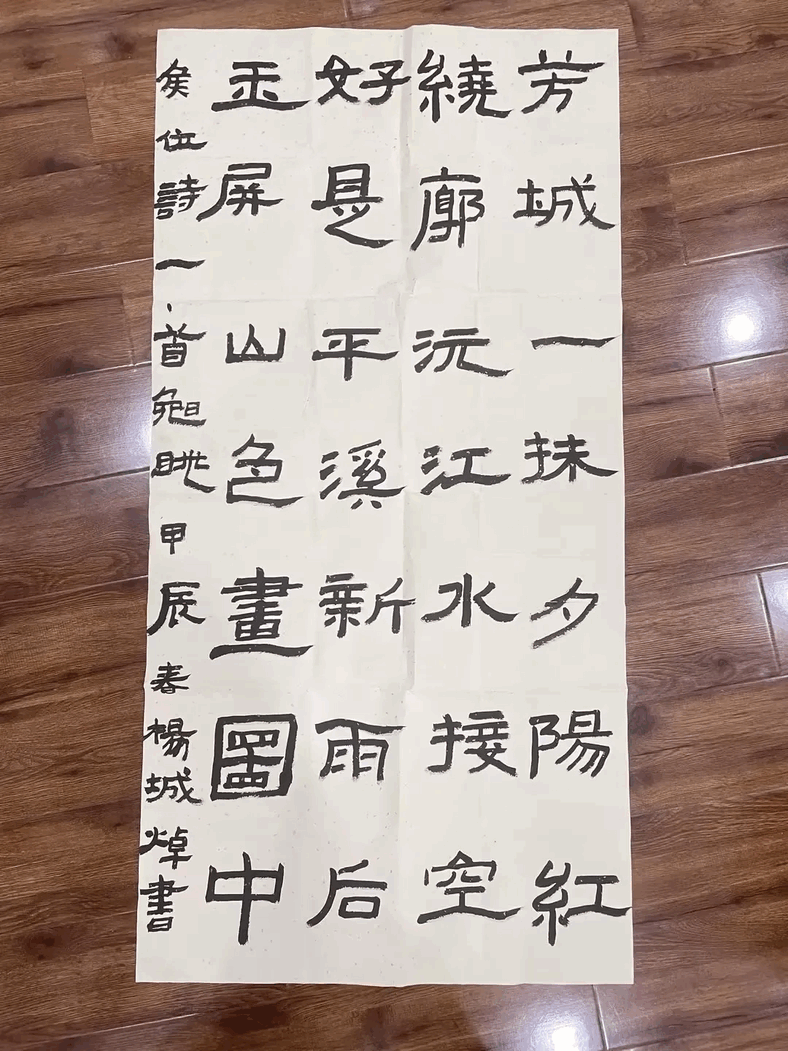 芳城一抹夕陽紅
繞廓沅江水接空
好是平溪新雨后
玉屏山色畫圖中
侯位詩一首晚眺甲辰春楊城焯書